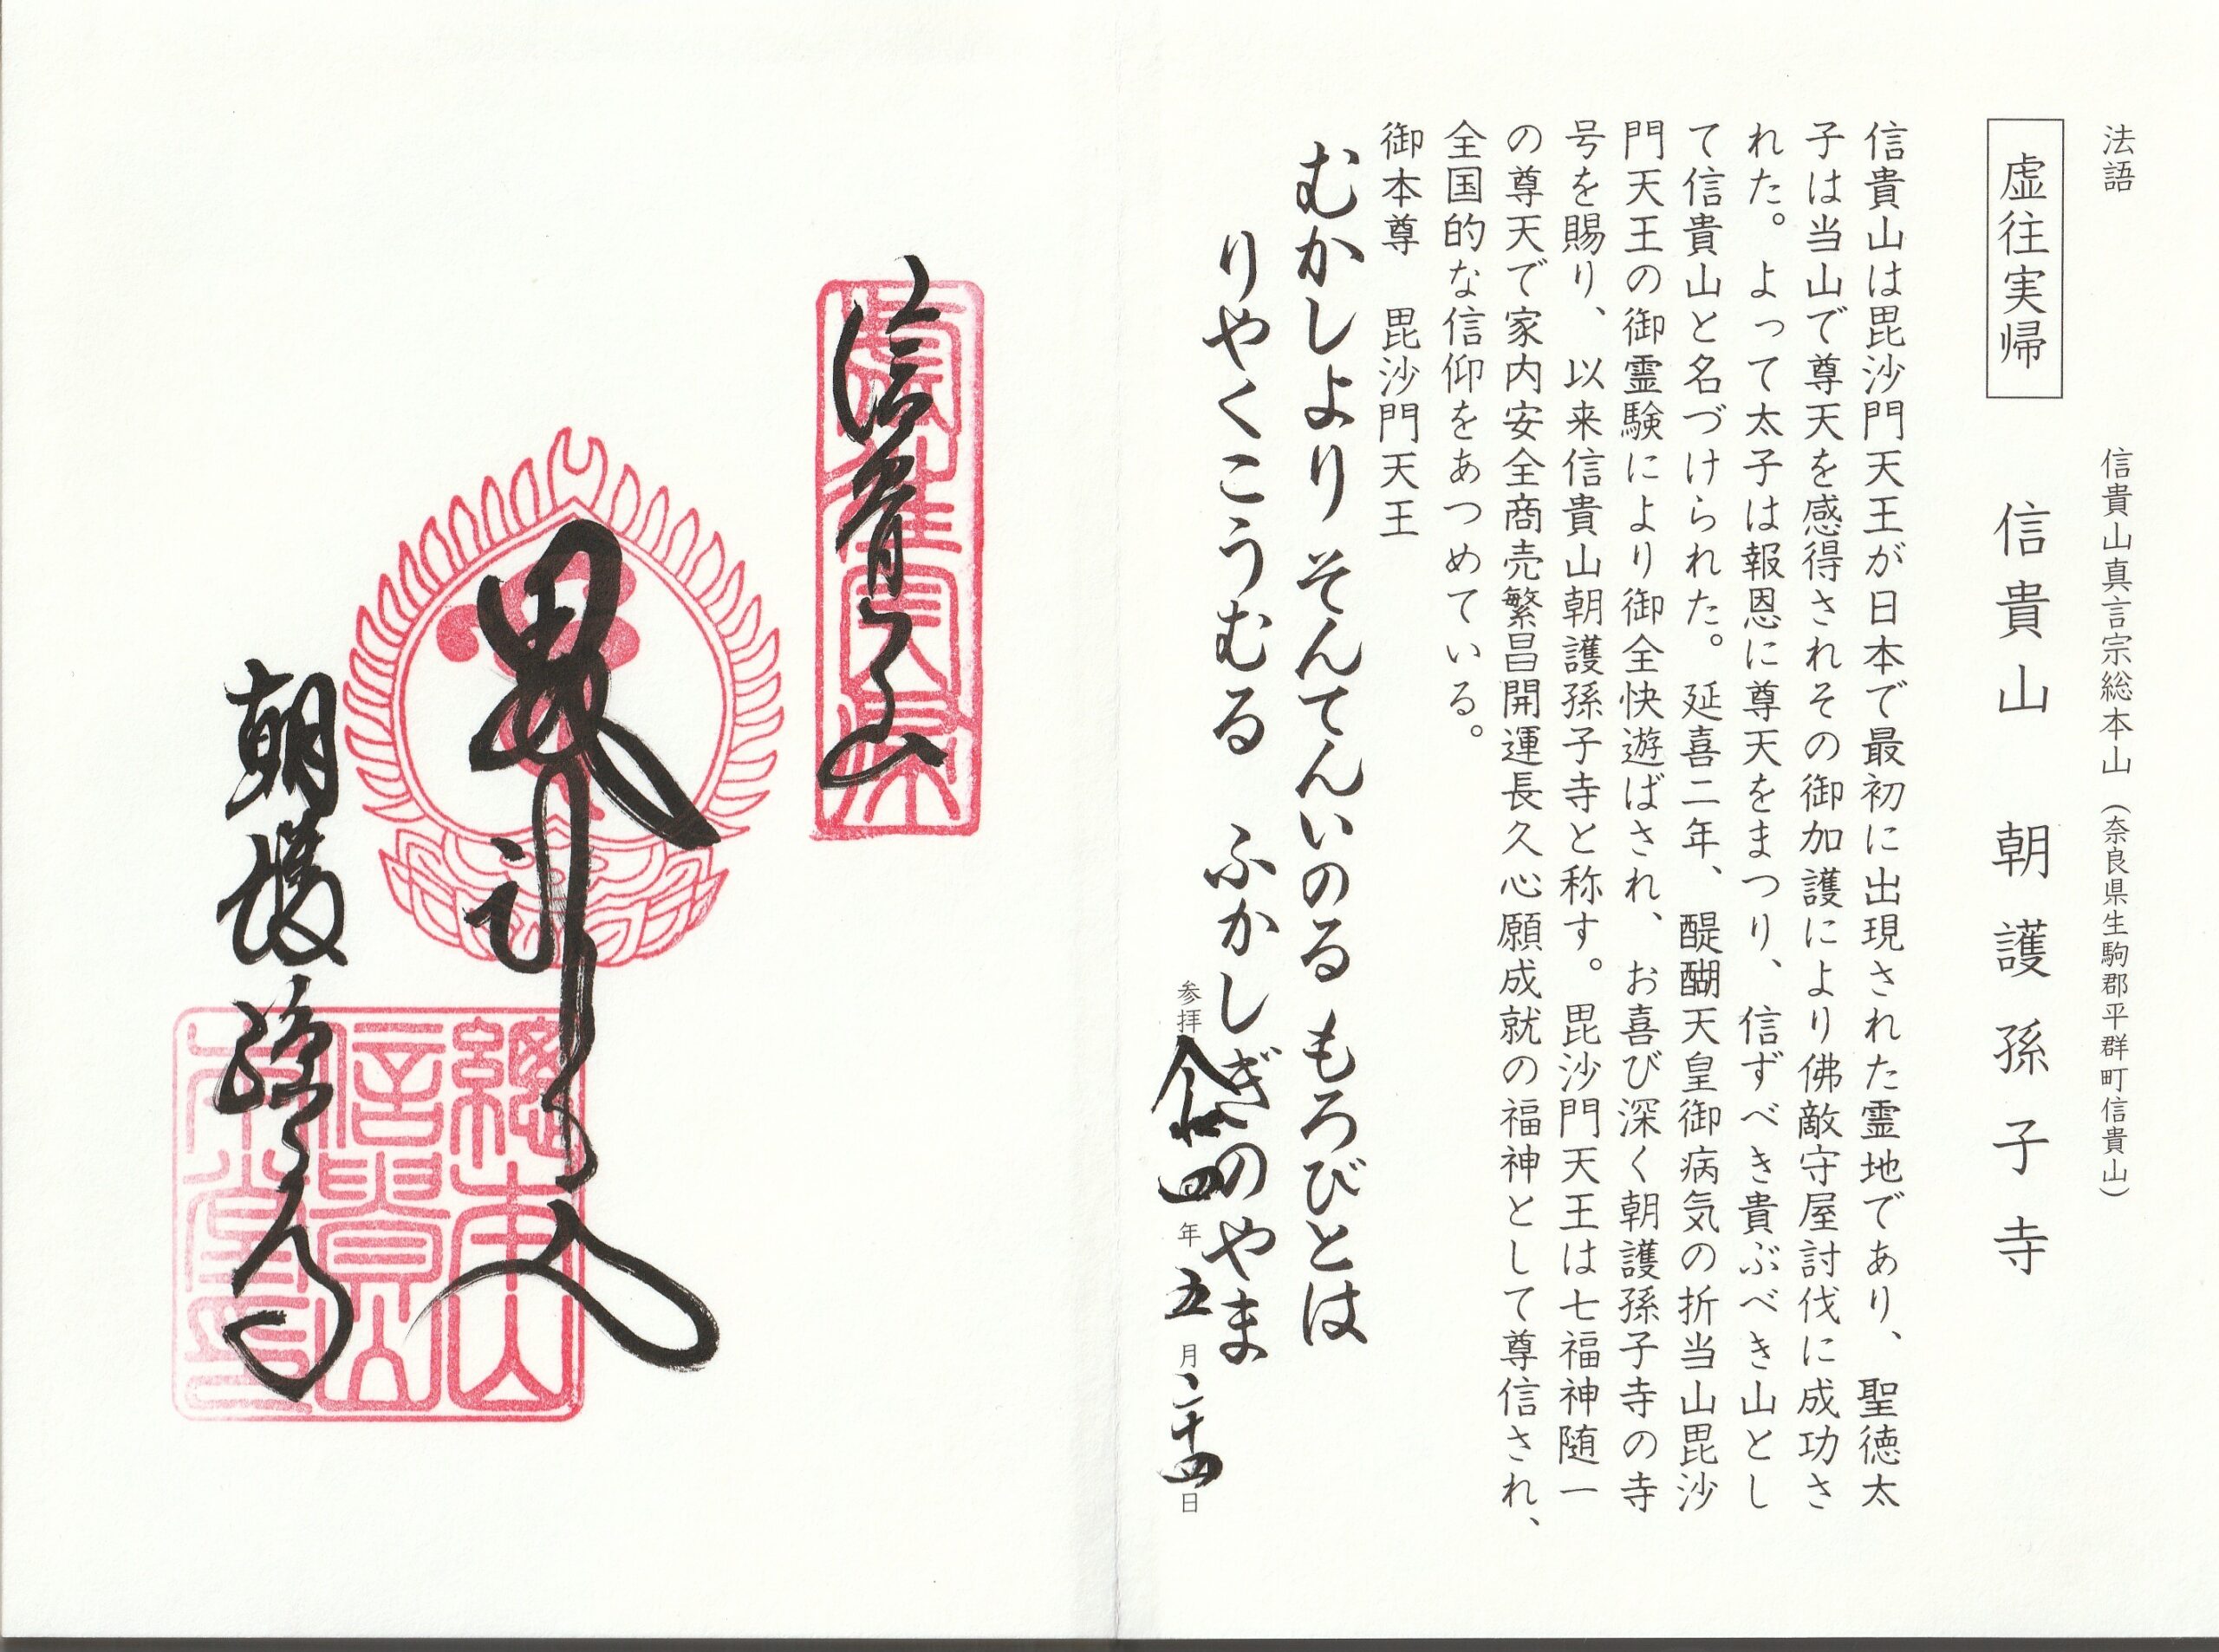 法語
信貴山真言宗総本山（奈良県生駒郡平群町信貴山）
虚往実帰　信貴山　朝護孫子寺
信貴山は毘沙門天王が日本で最初に出現された霊地であり、聖徳太
子は当山で尊天を感得されその御加護により佛敵守屋討伐に成功さ
れた。よって太子は報恩に尊天をまつり、信ずべき貴ぶべき山とし
て信貴山と名づけられた。延喜二年、醍醐天皇御病気の折当山毘沙
門天王の御霊験により御全快遊ばされ、お喜び深く朝護孫子寺の寺
号を賜り、以来信貴山朝護孫子寺と称す。毘沙門天王は七福神随一
の尊天で家内安全商売繁昌開運長久心願成就の福神として尊信され、
全国的な信仰をあつめている。
御本尊　毘沙門天王
むかしより　そんてんいのる　もろびとは
りやくこうむる　ふかしぎのやま
参拝　令和四年五月二十四日
信貴山
虚往実帰
毘沙門天
朝護孫子寺
總本山
信貴山